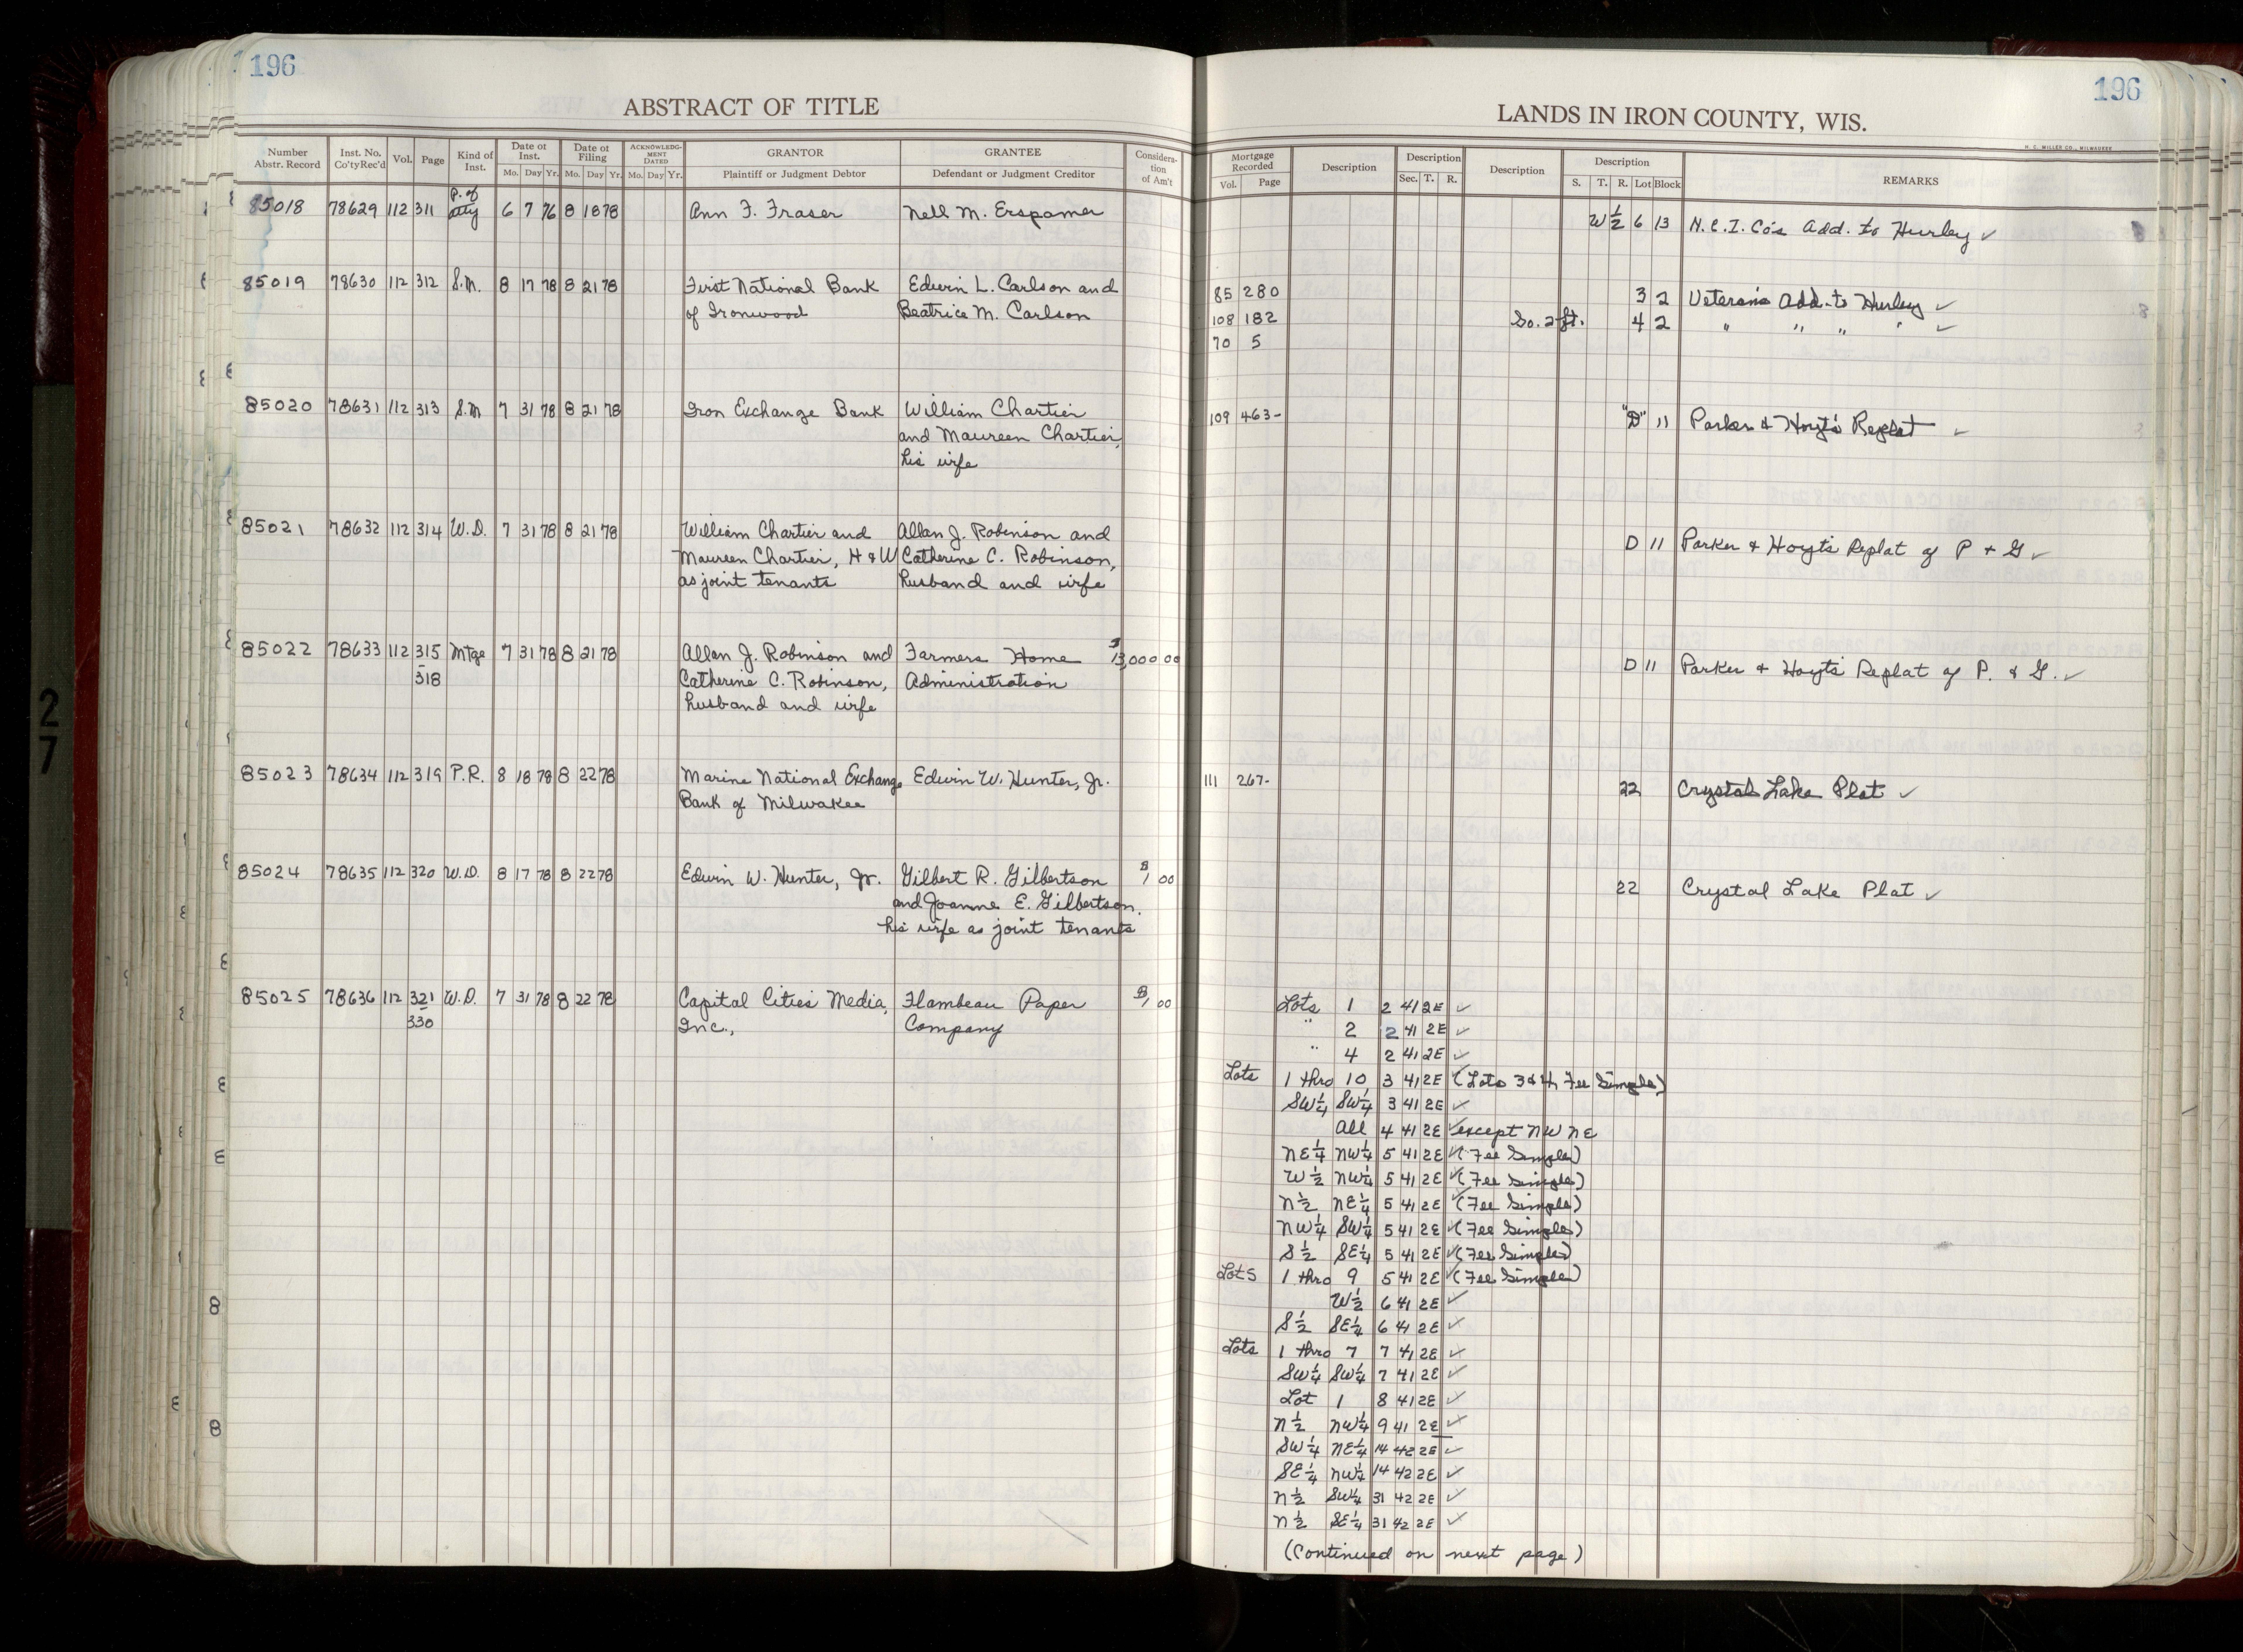 196
ABSTRACT OF TITLE
Number Abstr. Record | Inst. No. Co'ty Rec'd | Vol. | Page | Kind of Inst. | Date of Inst. Mo. Day Yr. | Date of Filing Mo. Day Yr. | ACKNOWLEDGMENT DATED Mo. Day Yr. | GRANTOR Plaintiff or Judgment Debtor | GRANTEE Defendant or Judgment Creditor | Consideration of Am't
85018 78629 112 311 P. of atty 6 7 76 8 18 78 Ann F. Fraser Nell M. Erspamer
85019 78630 112 312 S.M. 8 17 78 8 21 78 First National Bank Edwin L. Carlson and
of Ironwood Beatrice M. Carlson
85020 78631 112 313 S.M 7 31 78 8 21 78 Iron Exchange Bank William Chartier
and Maureen Chartier,
his wife
85021 78632 112 314 W.D. 7 31 78 8 21 78 William Chartier and Allan J. Robinson and
Maureen Chartier, H & W Catherine C. Robinson,
as joint tenants husband and wife
85022 78633 112 315 Mtge 7 31 78 8 21 78 Allan J. Robinson and Farmers Home $13,000 00
-318 Catherine C. Robinson, Administration
husband and wife
85023 78634 112 319 P.R. 8 18 78 8 22 78 Marine National Exchange Edwin W. Hunter, Jr.
Bank of Milwakee
85024 78635 112 320 W.D. 8 17 78 8 22 78 Edwin W. Hunter, Jr. Gilbert R. Gilbertson $1 00
and Joanne E. Gilbertson,
his wife as joint tenants
85025 78636 112 321 W.D. 7 31 78 8 22 78 Capital Cities Media, Flambeau Paper $1 00
-330 Inc., Company
196
LANDS IN IRON COUNTY, WIS.
H. C. MILLER CO., MILWAUKEE
Mortgage Recorded Vol. Page | Description | Description Sec. T. R. | Description | Description S. T. R. Lot Block | REMARKS
W ½ 6 13 N.C.I. Co's Add. to Hurley ✓
85 280 3 2 Veteran's Add. to Hurley ✓
108 182 So. 2 ft. 4 2 " " " " ✓
70 5
109 463- "D" 11 Parker & Hoyt's Replat ✓
D 11 Parker & Hoyt's Replat of P + G ✓
D 11 Parker & Hoyt's Replat of P. & G. ✓
111 267- 22 Crystal Lake Plat ✓
22 Crystal Lake Plat ✓
Lots 1 2 41 2E ✓
" 2 2 41 2E ✓
" 4 2 41 2E ✓
Lots 1 thro 10 3 41 2E ✓ (Lots 3 & 4, Fee Simple)
SW¼ SW¼ 3 41 2E ✓
All 4 41 2E ✓ except NW NE
NE¼ NW¼ 5 41 2E ✓ (Fee Simple)
W½ NW¼ 5 41 2E ✓ (Fee Simple)
N½ NE¼ 5 41 2E ✓ (Fee Simple)
NW¼ SW¼ 5 41 2E ✓ (Fee Simple)
S½ SE¼ 5 41 2E ✓ (Fee Simple)
Lots 1 thro 9 5 41 2E ✓ (Fee Simple)
W½ 6 41 2E ✓
S½ SE¼ 6 41 2E ✓
Lots 1 thro 7 7 41 2E ✓
SW¼ SW¼ 7 41 2E ✓
Lot 1 8 41 2E ✓
N½ NW¼ 9 41 2E ✓
SW¼ NE¼ 14 42 2E ✓
SE¼ NW¼ 14 42 2E ✓
N½ SW¼ 31 42 2E ✓
N½ SE¼ 31 42 2E ✓
(Continued on next page)
27